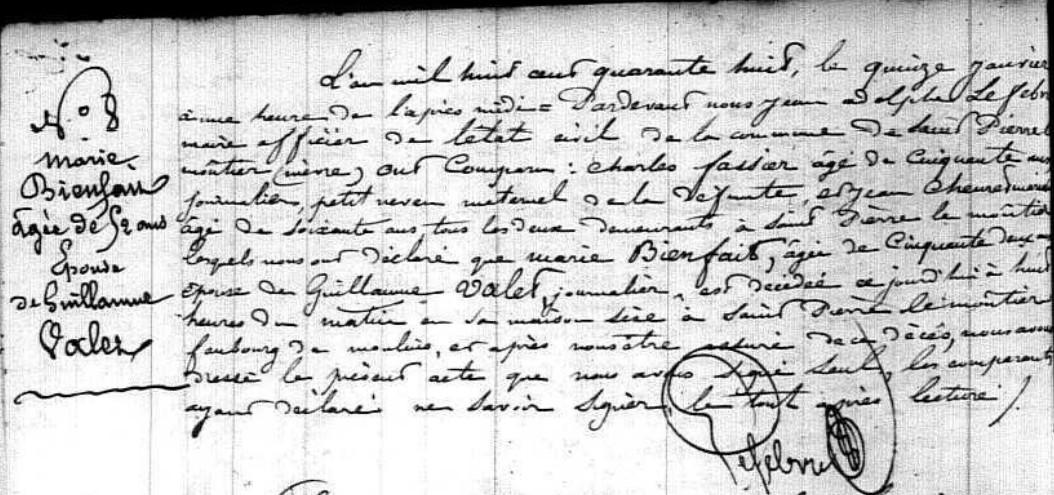 N.o 8
marie
Bienfait
âgée de 52 ans
Epouse
de Guillaume
Valet
L'an mil huit cent quarante huit, le quinze janvier
à une heure de l'après midi = Pardevant nous jean adolphe Lefebvre
maire officier de l'état civil de la commune de Saint Pierre le
moûtier (nièvre) ont Comparu : charles fassier âgé de Cinquante ans
journalier, petit neveu maternel de la défunte, et jean
âgé de soixante ans, tous les deux demeurants à Saint Pierre le moûtier
lesquels nous ont déclaré que marie Bienfait, âgée de Cinquante deux ans
épouse de Guillaume Valet, journalier, est décédée ce jourd'hui à huit
heures du matin en sa maison sise à Saint Pierre le moûtier
faubourg de moulins, et après nous être assuré de ce décès, nous avons
dressé le présent acte que nous avons signé seul, les comparants
ayant déclaré ne savoir signer, le tout après lecture /.
Lefebvre